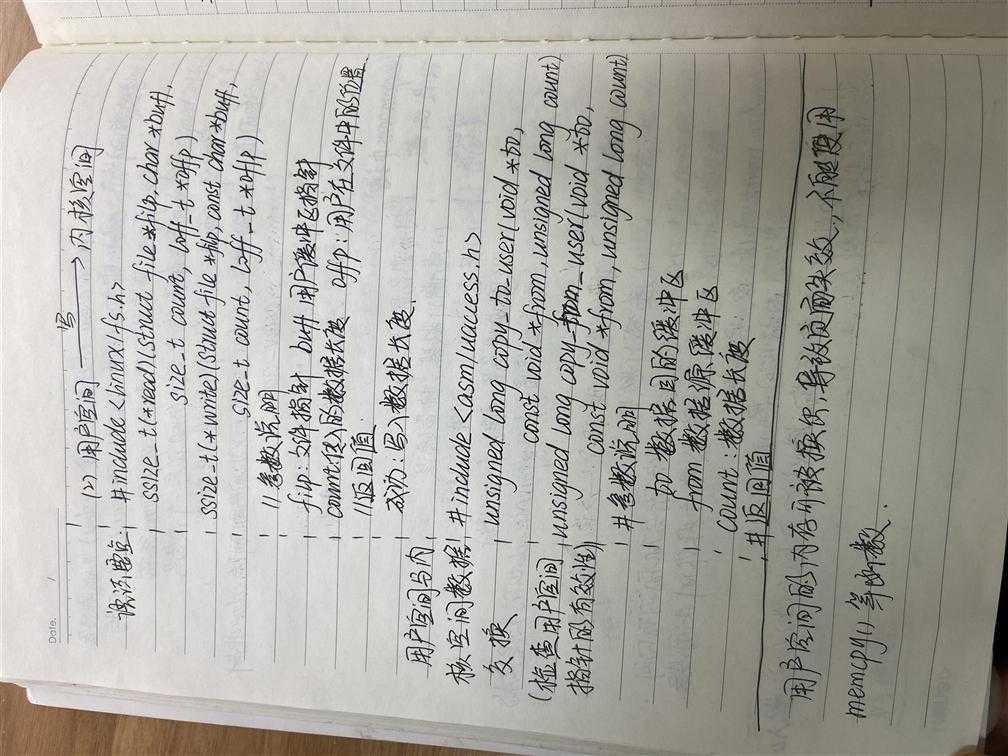 Date.
(2) 用户空间 —写→ 内核空间
读写要点: #include <linux/fs.h>
ssize_t(*read)(struct file *filp, char *buff,
size_t count, loff_t *offp)
ssize_t(*write)(struct file *filp, const char *buff,
size_t count, loff_t *offp)
//参数说明
filp:文件指针 buff 用户缓冲区指针
count:传入的数据长度 offp:用户在文件中的位置
//返回值
成功:写入数据长度
用户空间与内
核空间数据 #include <asm/uaccess.h>
交换 unsigned long copy_to_user(void *to,
const void *from, unsigned long count)
(检查用户空间 unsigned long copy_from_user(void *to,
指针的有效性) const void *from, unsigned long count)
#参数说明
to 数据目的缓冲区
from 数据源缓冲区
count:数据长度
#返回值
用户空间的内存可被换出,导致页面失效,不能使用
memcpy()等函数.